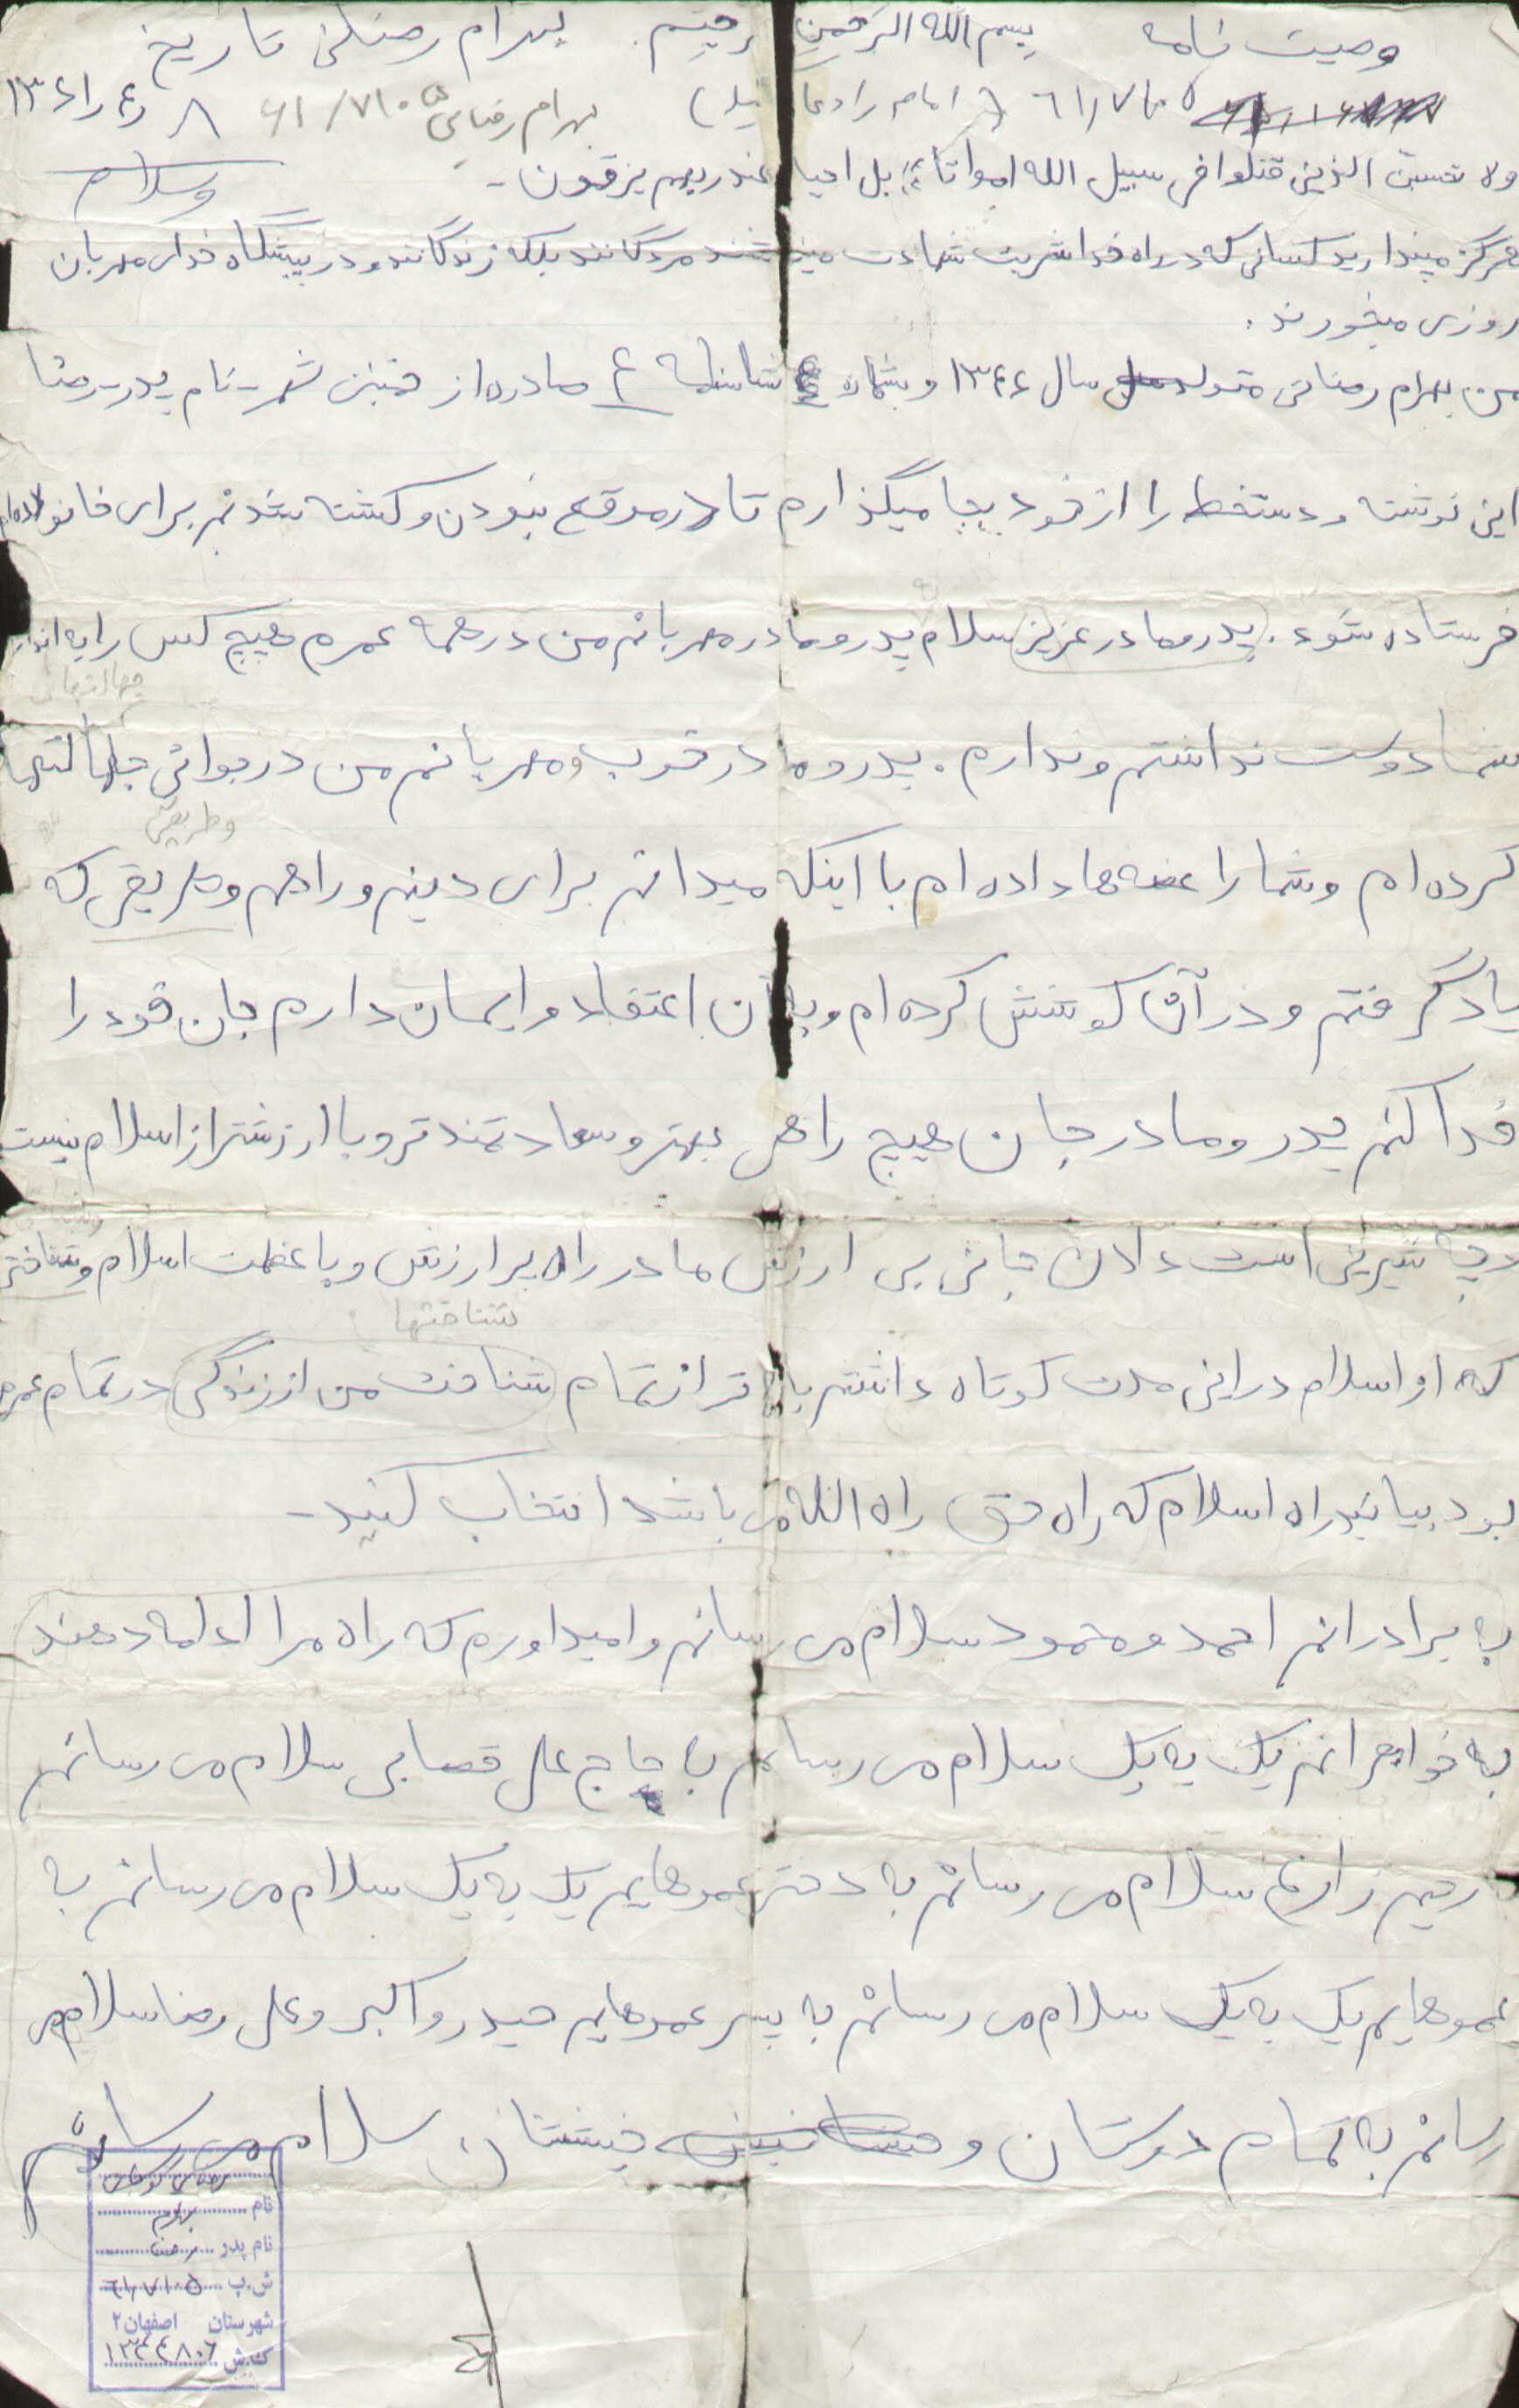 وصیت نامه بسم الله الرحمن رحیم. بهرام رضائی تاریخ
۶۱/۷۱۰۵ بهرام رضایی ۶۱/۷۱۰۵ ۸ /۴ /۱۳۶۱
ولا تحسبن الذین قتلوا فی سبیل الله امواتا بل احیا عند ربهم یرقون -
وسلام
هرگز مپندارید کسانی که در راه خدا شربت شهادت مینوشند مردگانند بلکه زندگانند و در پیشگاه خدای مهربان
روزی میخورند.
من بهرام رضائی متولد سال ۱۳۴۶ و بشماره شناسنامه ۴ صادره از خمینی شهر - نام پدر - رضا
این نوشته و دستخط را از خود بجا میگذارم تا در موقع نبودن و کشته شدنم برای خانواده‌ام
فرستاده شود. پدر و مادر عزیز سلام پدر و مادر مهربانم من در همه عمرم هیچ کس را به اندازه
جهالتهایی
شما دوست نداشتم و ندارم. پدر و مادر خوب و مهربانم من در جوانی جهالتها
وطریقی
کرده ام و شما را غصه ها داده ام با اینکه میدانم برای دینم و راهم و طریقی که
یاد گرفتم و در آن کوشش کرده ام و به آن اعتقاد و ایمان دارم جان خود را
فدا کنم پدر و مادر جان هیچ راهی بهتر و سعادتمندتر و با ارزشتر از اسلام نیست
و چه شیرین است دادن جانی بی ارزش ما در راه پر ارزش و با عظمت اسلام و شناختی
شناختها
که از اسلام در این مدت کوتاه داشتم بالاتر از تمام شناخت من از زندگی در تمام عمرم
بود بیائید راه اسلام که راه حق راه الله می باشد انتخاب کنید -
به برادرانم احمد و محمود سلام می رسانم و امیداورم که راه مرا ادامه دهند
به خواهرانم یک به یک سلام می رسانم با حاج علی قصابی سلام می رسانم
رحیم زارع سلام می رسانم به دختر عموهایم یک به یک سلام می رسانم به
عموهایم یک به یک سلام می رسانم به پسر عموهایم حیدر و اکبر و علی رضا سلام می
رسانم به تمام دوستان و خیشتان سلام می رسانم
نام بهرام
نام پدر رضا
ش.پ ۶۱/۷۱۰۵
شهرستان اصفهان ۲
کد.ش ۱۳۴۴۸۰۶